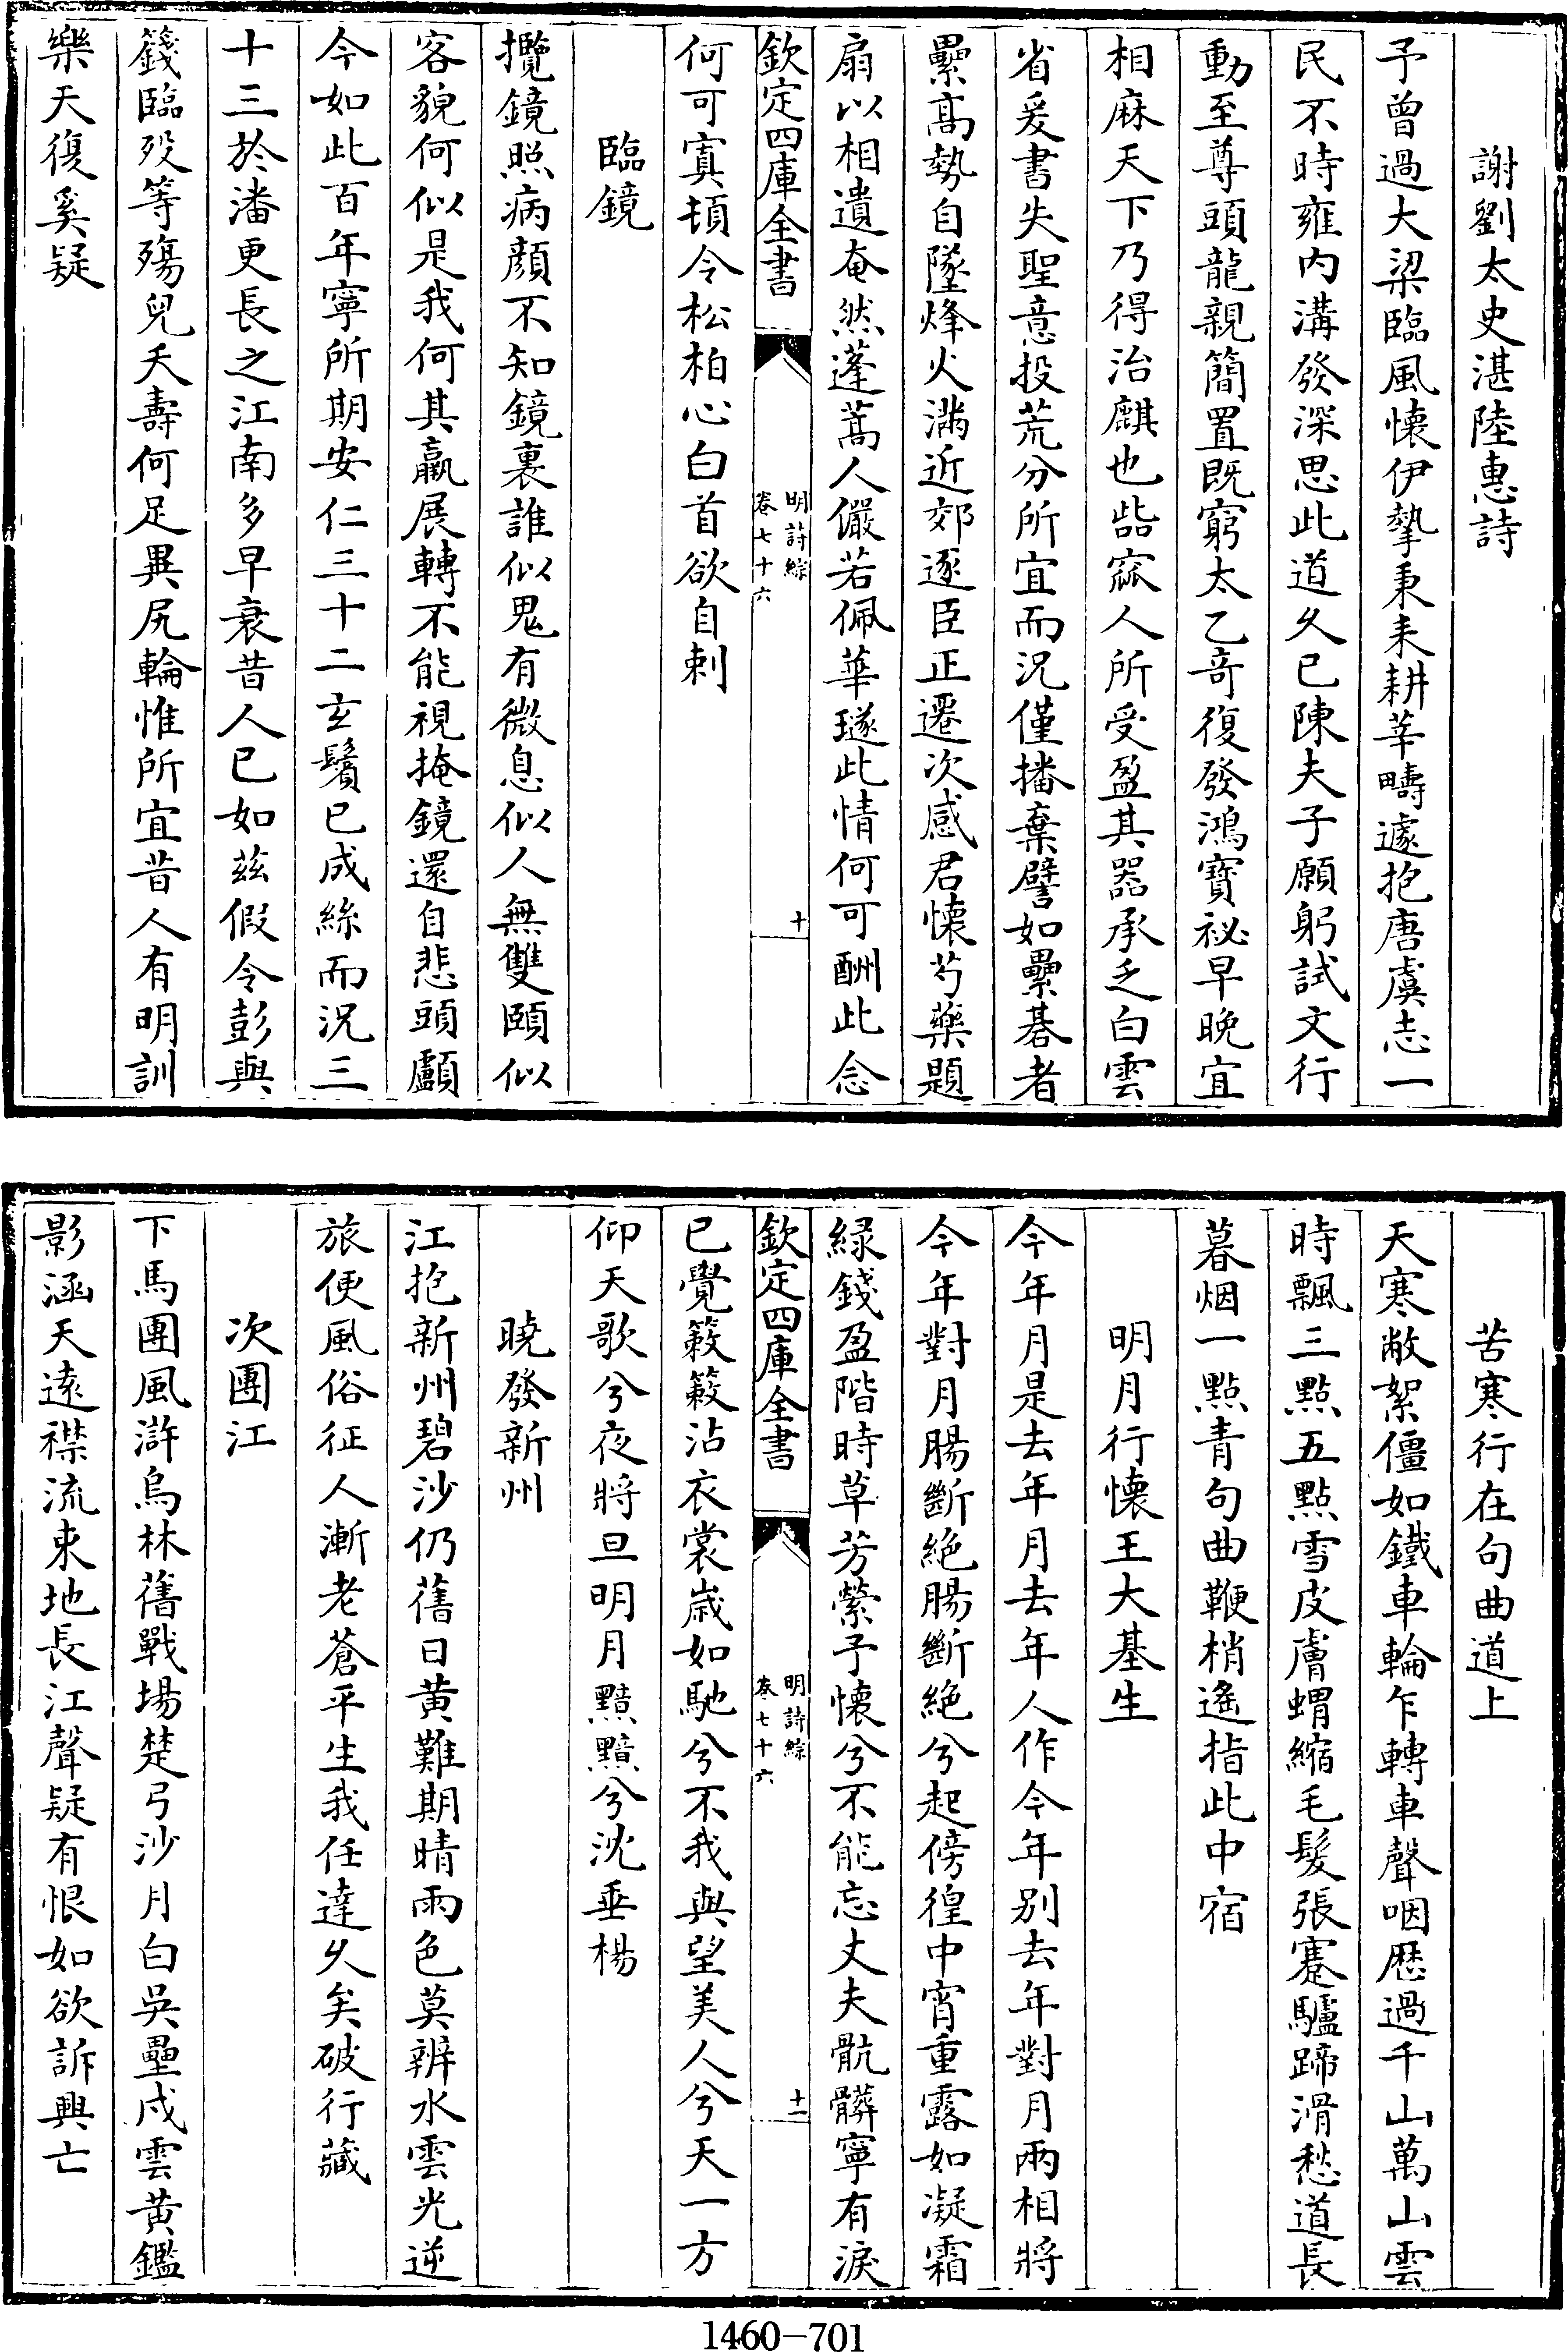 謝劉太史湛陸惠詩
予曾過大梁臨風懐伊摯秉耒耕莘疇遽抱唐虞志一
民不時雍内溝發深思此道久已陳夫子願躬試文行
動至尊頭龍親簡置既窮太乙竒復發鴻寳祕早晚宜
相麻天下乃得治麒也呰窳人所受盈其器承乏白雲
省爰書失聖意投荒分所宜而況僅播棄譬如纍碁者
纍髙勢自墜烽火滿近郊逐臣正遷次感君懐芍藥題
扇以相遺奄然蓬蒿人儼若佩華璲此情何可酬此念
欽定四庫全書
明詩綜
卷七十六
十
何可寘頓令松柏心白首欲自刺
臨鏡
攬鏡照病顔不知鏡裏誰似鬼有微息似人無雙頤似
客貌何似是我何其羸展轉不能視掩鏡還自悲頭顱
今如此百年寧所期安仁三十二玄鬢已成絲而況三
十三於潘更長之江南多早衰昔人已如兹假令彭與
籛臨殁等殤兒夭壽何足異尻輪惟所宜昔人有明訓
樂天復奚疑
苦寒行在句曲道上
天寒敝絮僵如鐵車輪乍轉車聲咽歴過千山萬山雲
時飄三點五點雪皮膚蝟縮毛髮張蹇驢蹄滑愁道長
暮烟一點青句曲鞭梢遙指此中宿
明月行懐王大基生
今年月是去年月去年人作今年别去年對月兩相將
今年對月腸斷絶腸斷絶兮起傍徨中宵重露如凝霜
緑錢盈階時草芳縈予懐兮不能忘丈夫骯髒寧有淚
欽定四庫全書
明詩綜
卷七十六
十一
已覺簌簌沾衣裳歲如馳兮不我與望美人兮天一方
仰天歌兮夜將旦明月黯黯兮沈垂楊
曉發新州
江抱新州碧沙仍舊日黄難期晴雨色莫辨水雲光逆
旅便風俗征人漸老蒼平生我任達久矣破行藏
次團江
下馬團風滸烏林舊戰場楚弓沙月白吳壘戍雲黄鑑
影涵天逺襟流束地長江聲疑有恨如欲訴興亡
1460—701